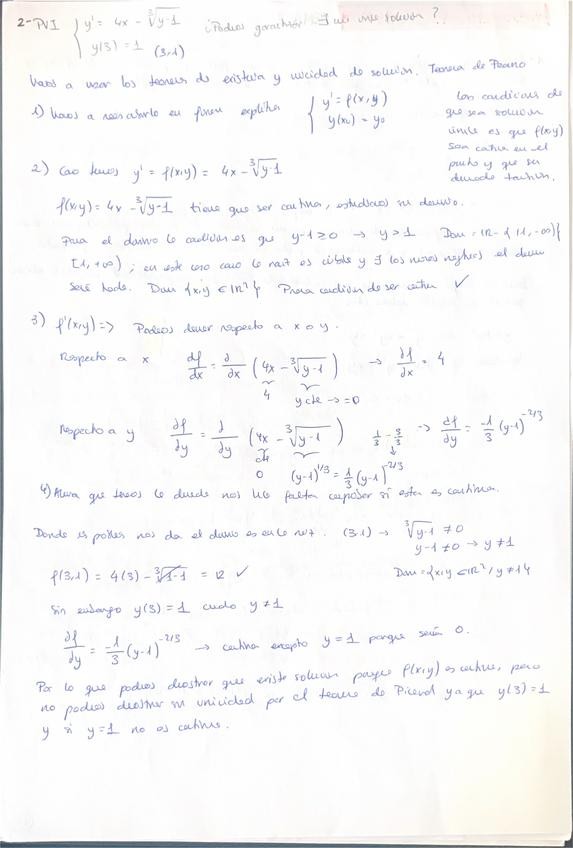 2- PVI { y' = 4x - ∛(y-1) ¿Podemos garantizar ∃ una única solución?
y(3) = 1 (3,1)
Vamos a usar los teoremas de existencia y unicidad de solución. Teorema de Peano
1) Vamos a reescribirlo en forma explícita { y' = f(x,y)
y(x₀) = y₀
Las condiciones de
que sea solución
única es que f(x,y)
sea continua en el
punto y que su
derivada también.
2) Como tenemos y' = f(x,y) = 4x - ∛(y-1)
f(x,y) = 4x - ∛(y-1) tiene que ser continua, estudiamos su dominio.
Para el dominio la condición es que y-1 ≥ 0 → y > 1 Dom = ℝ - { (1, -∞) }
[1, +∞) ; en este caso como la raíz es cúbica y ∃ los números negativos el dominio
será todo. Dom {x,y ∈ ℝ²} Primera condición de ser continua ✓
3) f'(x,y) => Podemos derivar respecto a x o y.
Respecto a x df/dx = ∂/∂x (4x - ∛(y-1)) → ∂f/∂x = 4
4 y cte → =0
Respecto a y ∂f/∂y = ∂/∂y (4x - ∛(y-1)) 1/3 - 3/3 → ∂f/∂y = -1/3 (y-1)^(-2/3)
cte
0 (y-1)^(1/3) = 1/3 (y-1)^(-2/3)
4) Ahora que tenemos la derivada nos falta comprobar si esta es continua.
Donde es posible nos da el dominio es en la raíz. (3,1) → ∛(y-1) ≠ 0
y-1 ≠ 0 → y ≠ 1
f(3,1) = 4(3) - ∛(1-1) = 12 ✓ Dom = {x,y ∈ ℝ² / y ≠ 1}
Sin embargo y(3) = 1 cuando y ≠ 1
∂f/∂y = -1/3 (y-1)^(-2/3) → continua excepto y = 1 porque sería 0.
Por lo que podemos demostrar que existe solución porque f(x,y) es continua, pero
no podemos demostrar su unicidad por el teorema de Picard ya que y(3) = 1
y si y = 1 no es continua.